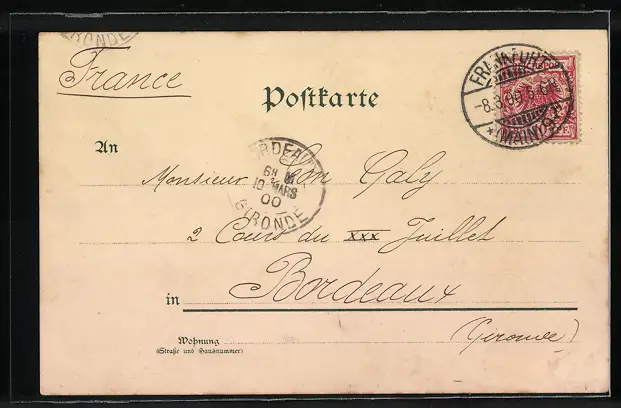 GIRONDE
France
Postkarte
FRANKFURT
-8.3.00.5-6N.
* (MAIN)
An
BORDEAUX
6H
10 MARS
00
GIRONDE
Monsieur Léon Galy
2 Cours du XXX Juillet
in Bordeaux
(Gironde)
Wohnung
(Straße und Hausnummer)